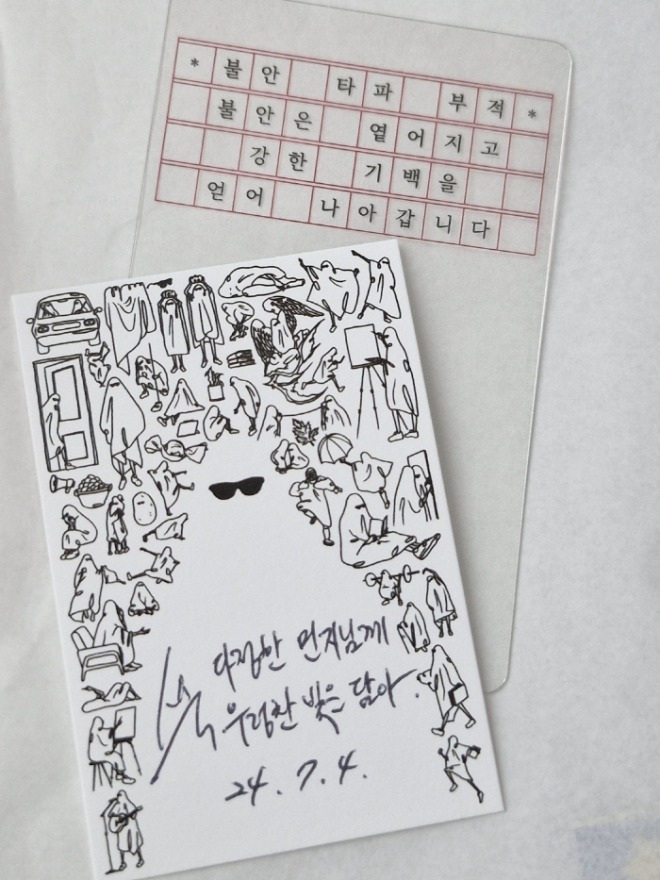 * 불안 타파 부적 *
불안은 옅어지고
강한 기백을
얻어 나아갑니다
다정한 먼지님께
우렁찬 빛을 담아.
24. 7. 4.